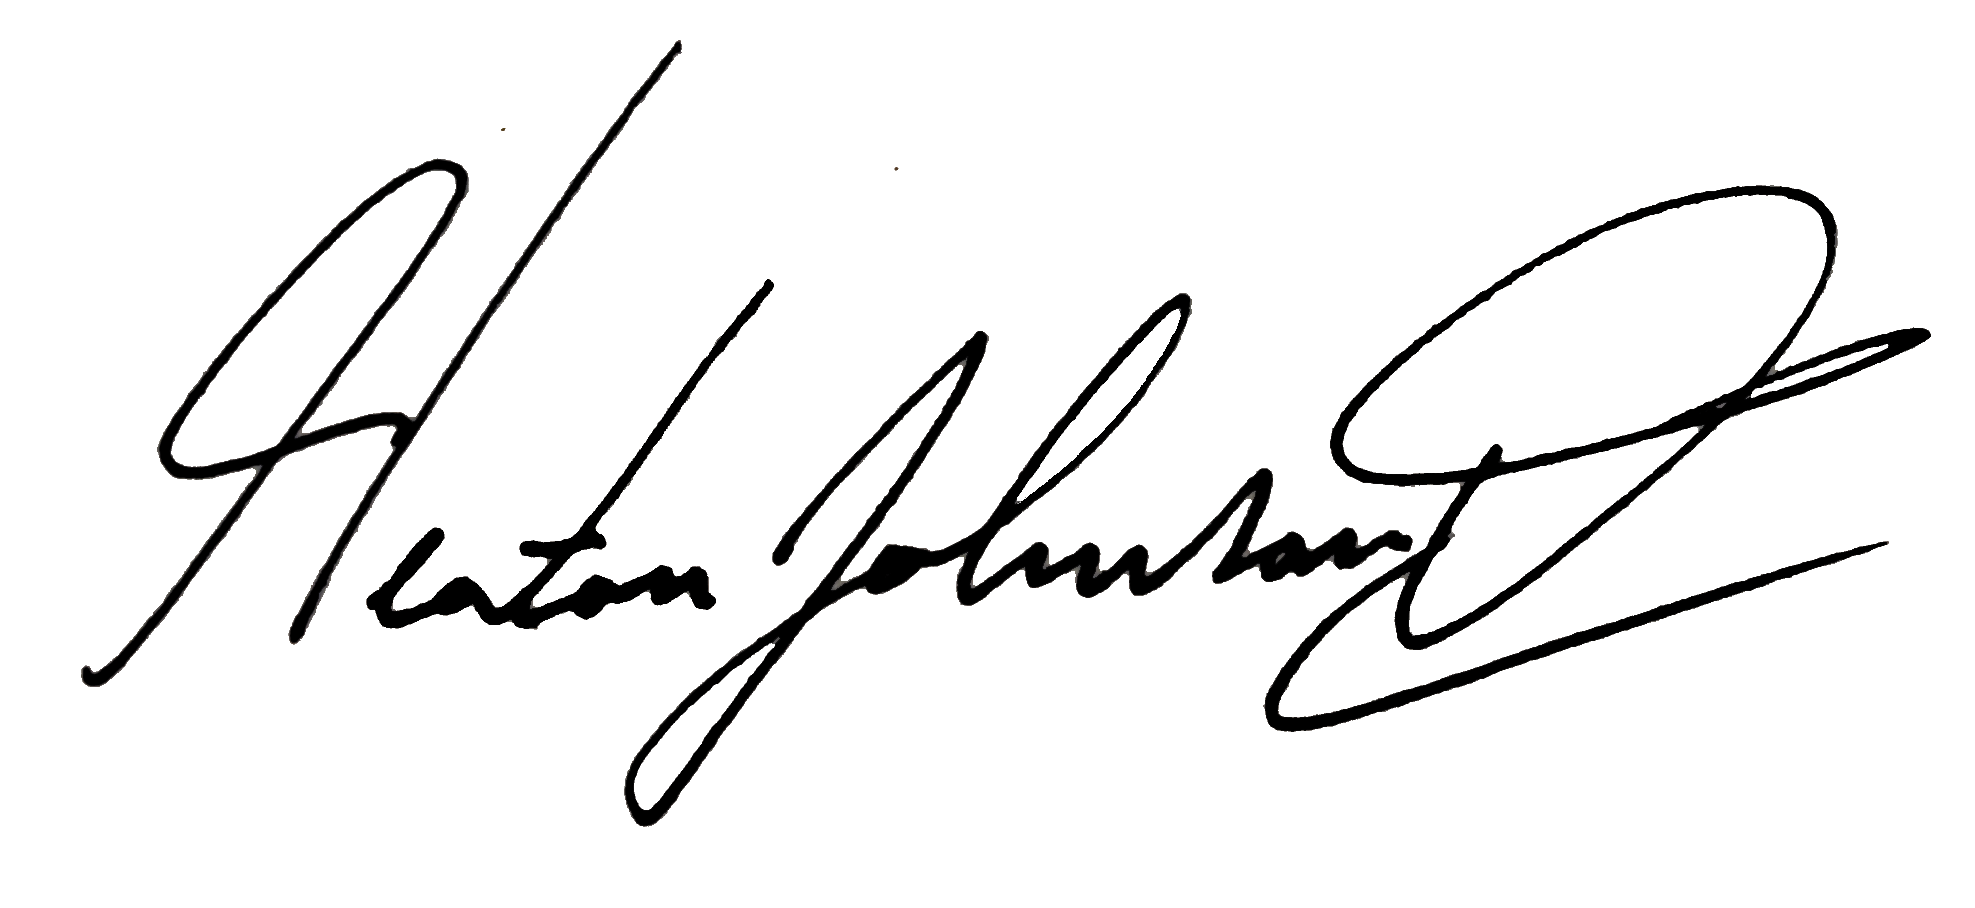 Heaton Johnson